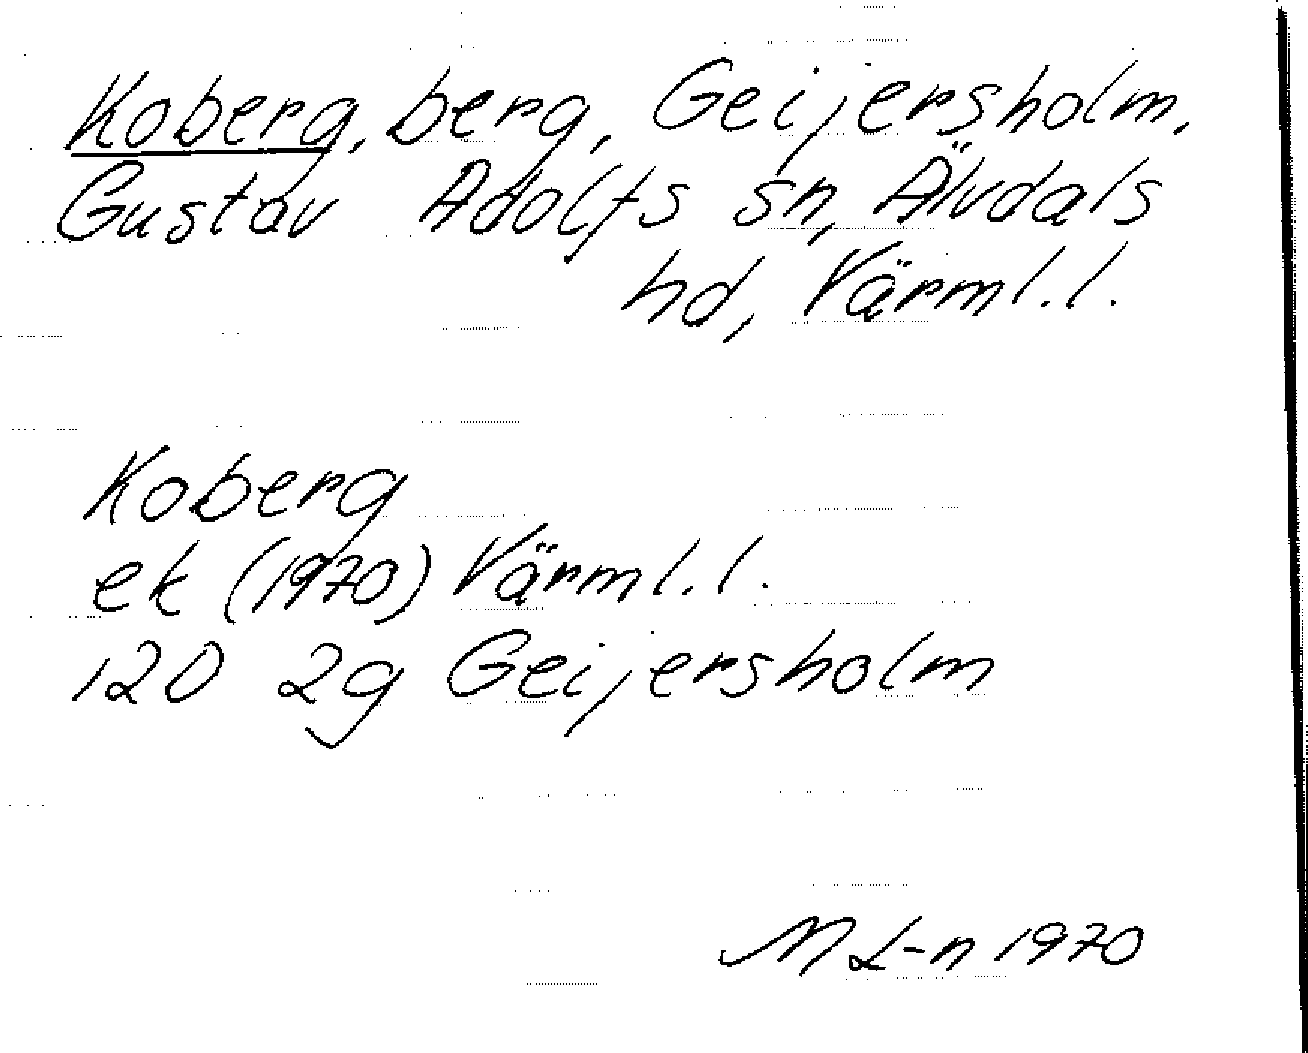 Koberg, berg, Geijersholm,
Gustav Adolfs sn, Älvdals
hd, Värml. l.
Koberg
ek (1970) Värml. l.
12D 2g Geijersholm
M L-n 1970